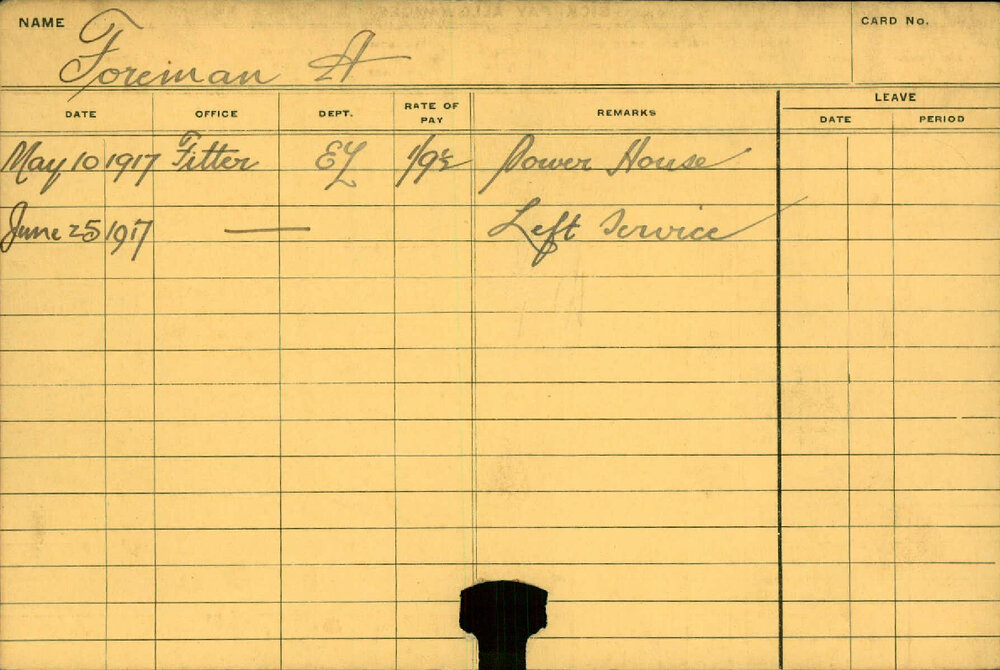 NAME
CARD No.
Foreman A
DATE OFFICE DEPT. RATE OF PAY REMARKS LEAVE
DATE PERIOD
May 10 1917 Fitter EL 1/9½ Power House
June 25 1917 — Left Service